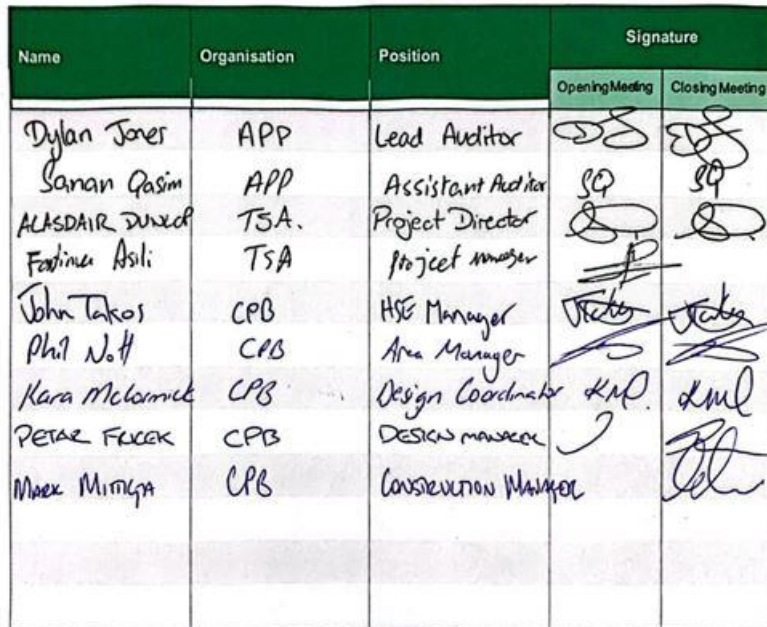 Name Organisation Position Signature
Opening Meeting Closing Meeting
Dylan Jones APP Lead Auditor
Sanan Qasim APP Assistant Auditor SQ SQ
ALASDAIR TSA. Project Director
Asili TSA Project Manager
John Takos CPB HSE Manager
Phil Nott CPB Area Manager
Kara McCormick CPB Design Coordinator
PETAR CPB DESIGN MANAGER
MARK CPB CONSTRUCTION MANAGER